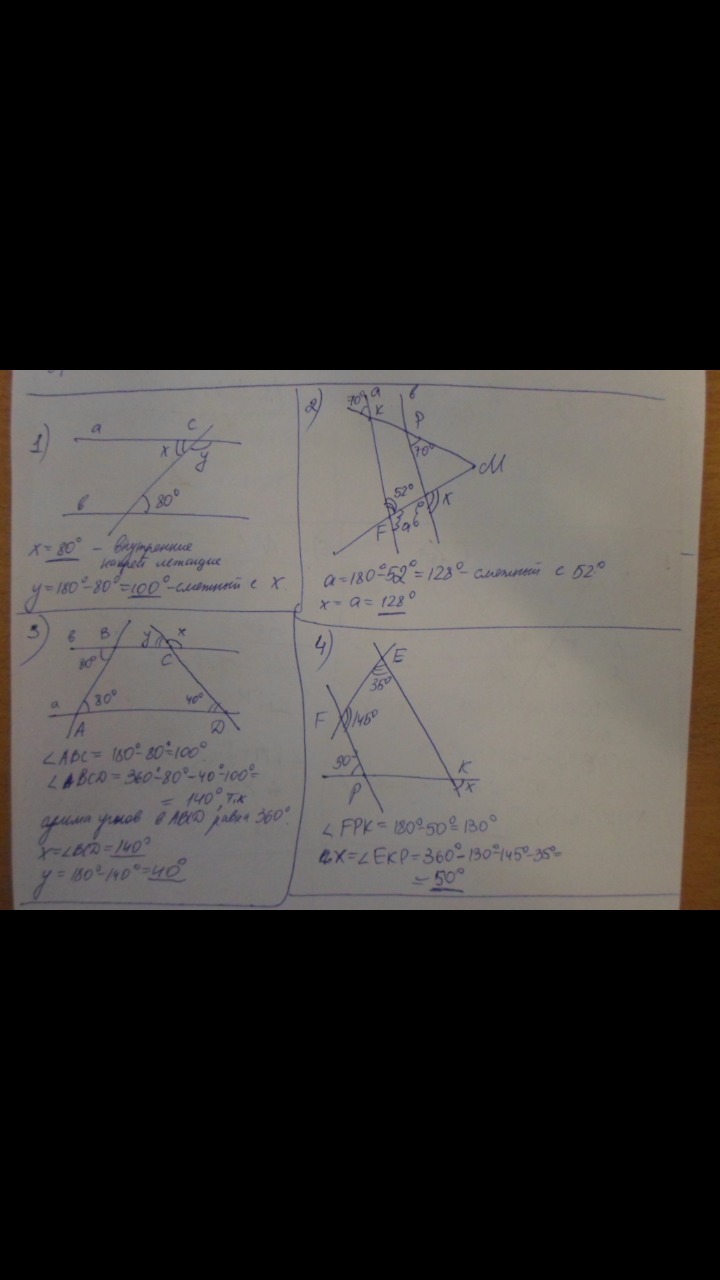 1)
a
C
x
y
в
80°
x = 80° - внутренние
накрест лежащие
y = 180° - 80° = 100° - смежный с x
2)
70°
a
в
K
P
70°
M
52°
x
F
a
a = 180° - 52° = 128° - смежный с 52°
x = a = 128°
3)
в
B
y
x
80°
C
a
80°
40°
A
D
∠ABC = 180° - 80° = 100°
∠ABCD = 360° - 80° - 40° - 100° =
= 140°, т.к
сумма углов в ABCD равна 360°
x = ∠BCD = 140°
y = 180° - 140° = 40°
4)
E
35°
F
145°
K
P
x
∠FPK = 180° - 50° = 130°
∠x = ∠EKP = 360° - 130° - 145° - 35° =
= 50°